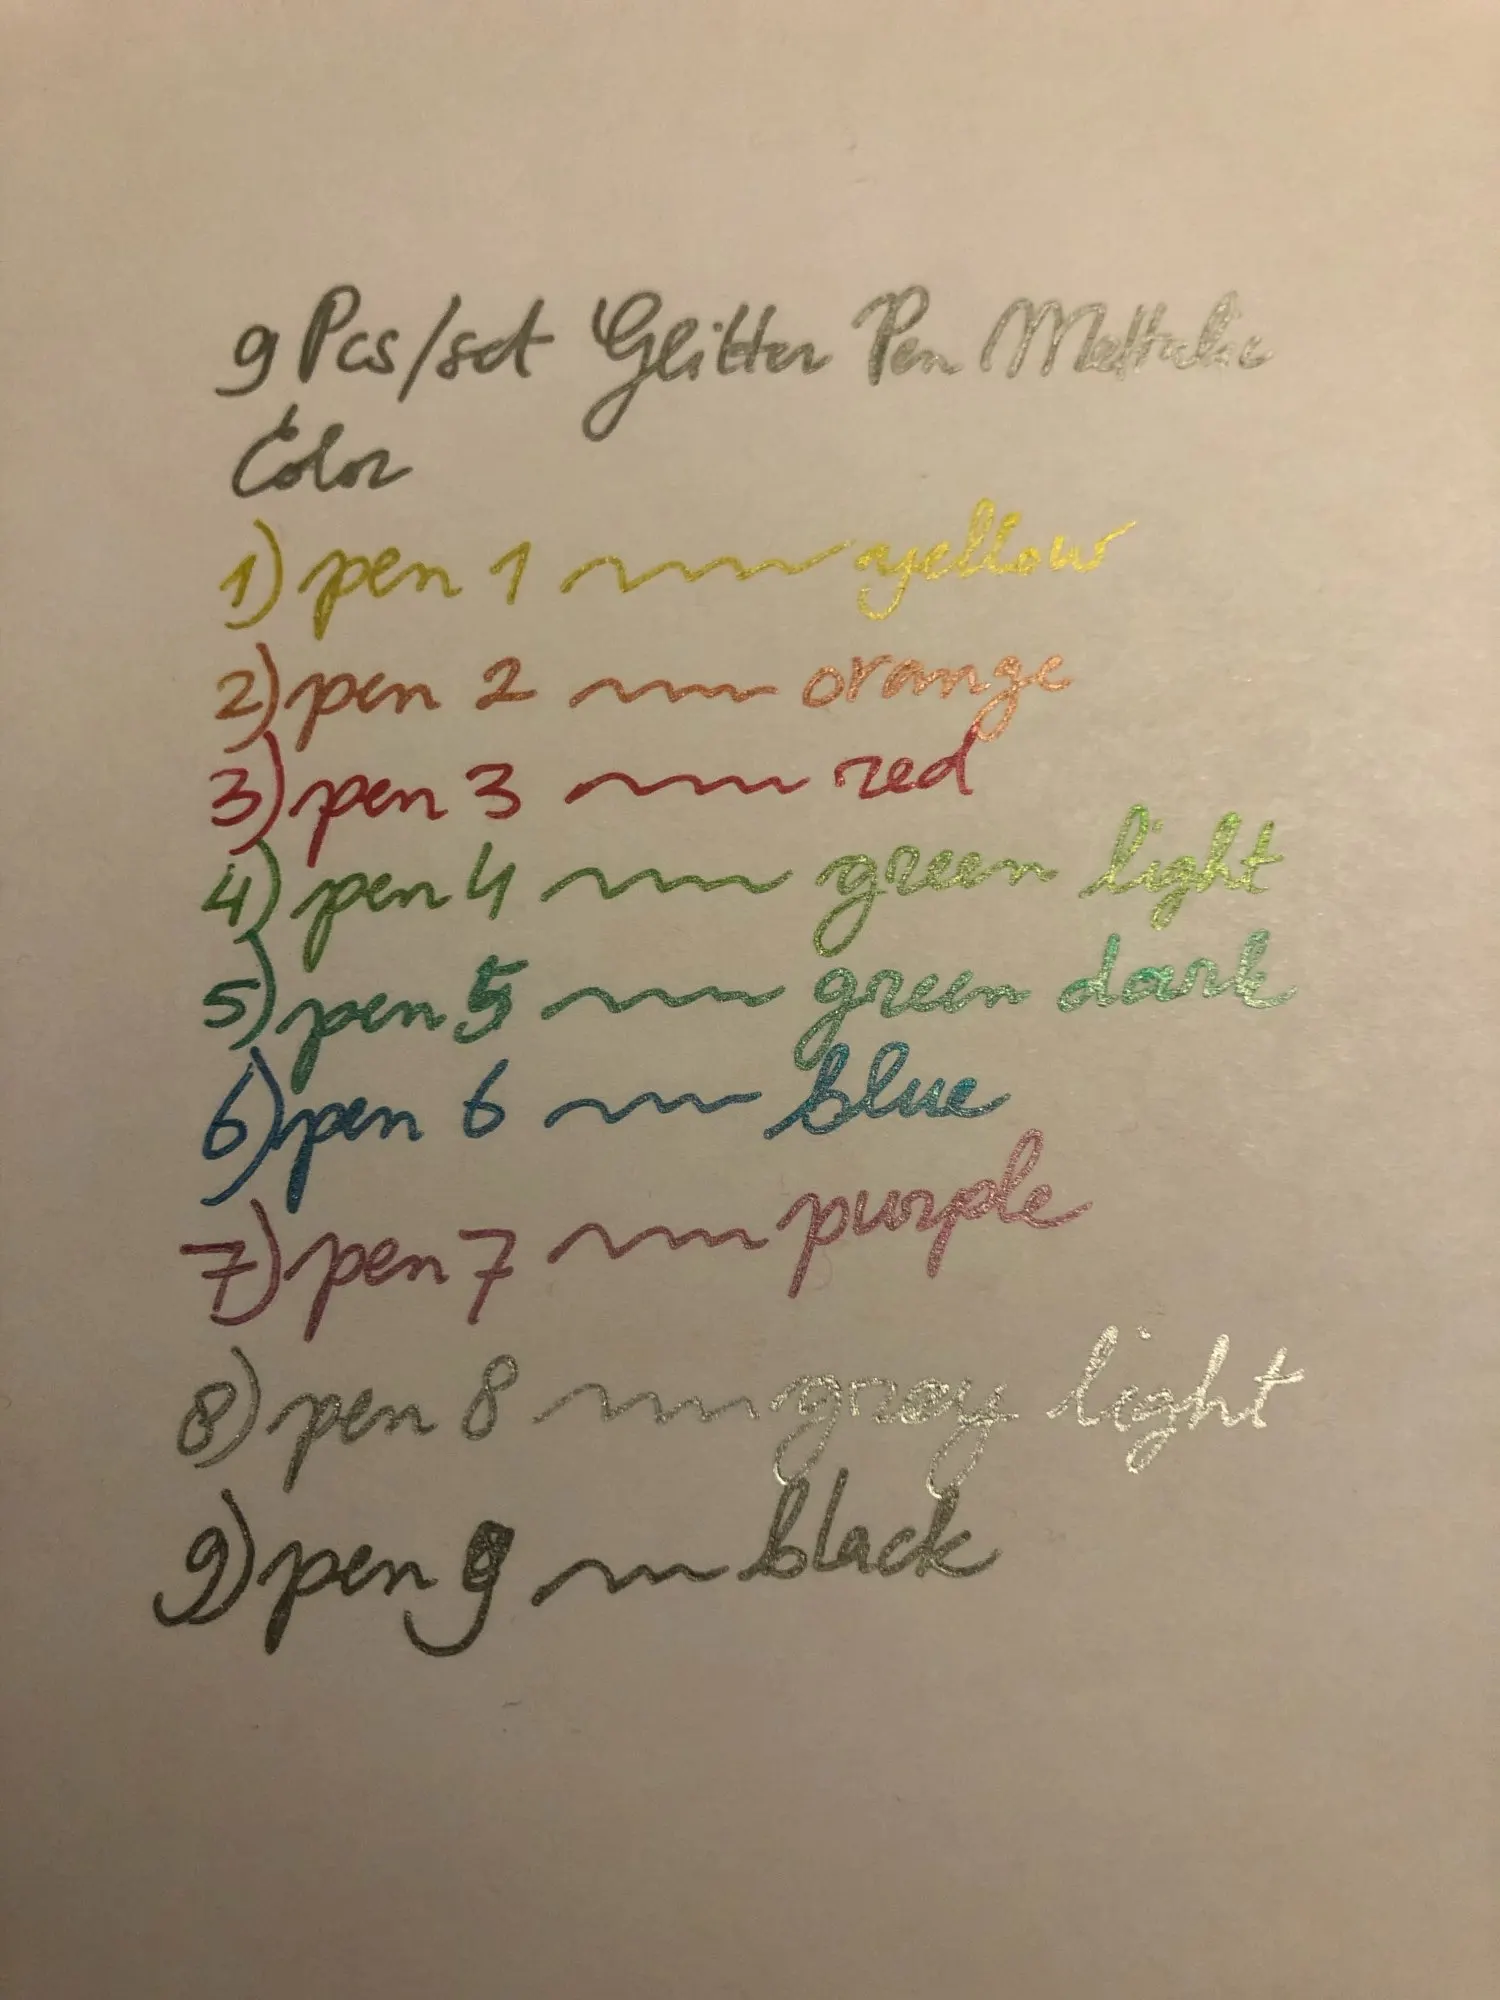 9 Pcs/set Glitter Pen Mettalic
Color
1) pen 1 yellow
2) pen 2 orange
3) pen 3 red
4) pen 4 green light
5) pen 5 green dark
6) pen 6 blue
7) pen 7 purple
8) pen 8 gray light
9) pen 9 black